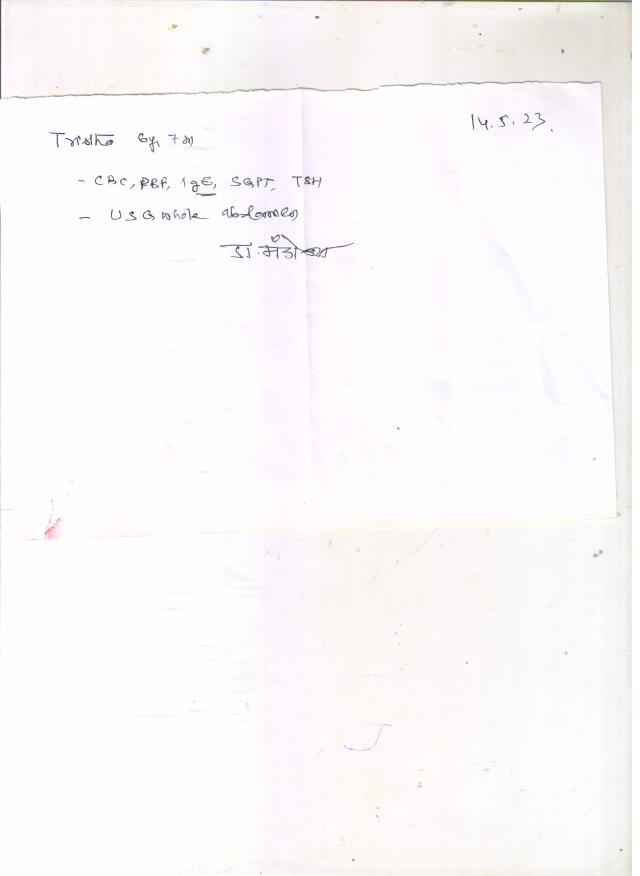 14.5.23.
Trisha 6y, 7m
- CBC, PBF, IgE, SGPT, TSH
- USG whole abdomen
डा.